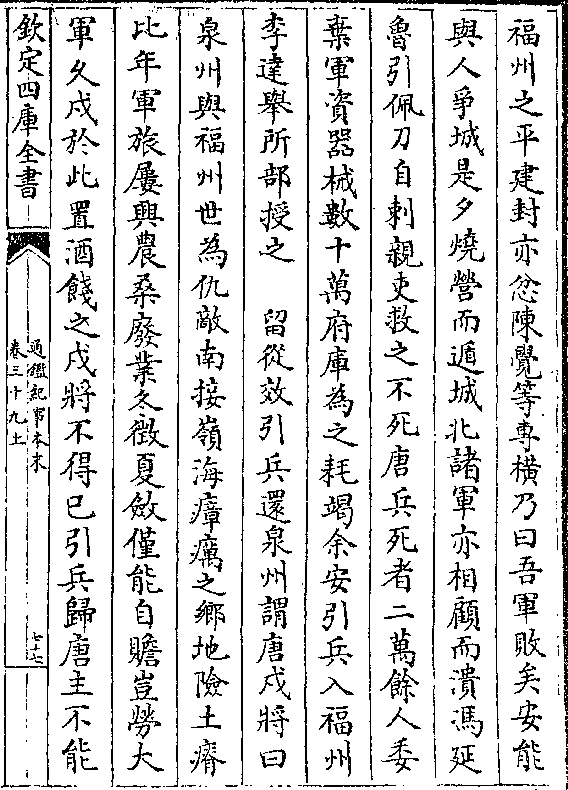 福州之平建封亦忿陳覺等専横乃曰吾軍敗矣安能
與人爭城是夕燒營而遁城北諸軍亦相顧而潰馮延
魯引佩刀自刺親吏救之不死唐兵死者二萬餘人委
棄軍資器械數十萬府庫為之耗竭余安引兵入福州
李達舉所部授之　留從效引兵還泉州謂唐戍將曰
泉州與福州世為仇敵南接嶺海瘴癘之鄉地險土瘠
比年軍旅屢興農桑廢業冬徴夏斂僅能自贍豈勞大
軍久戍於此置酒餞之戍將不得已引兵歸唐主不能
欽定四庫全書
通鑑紀事本末
卷三十九上
七十七